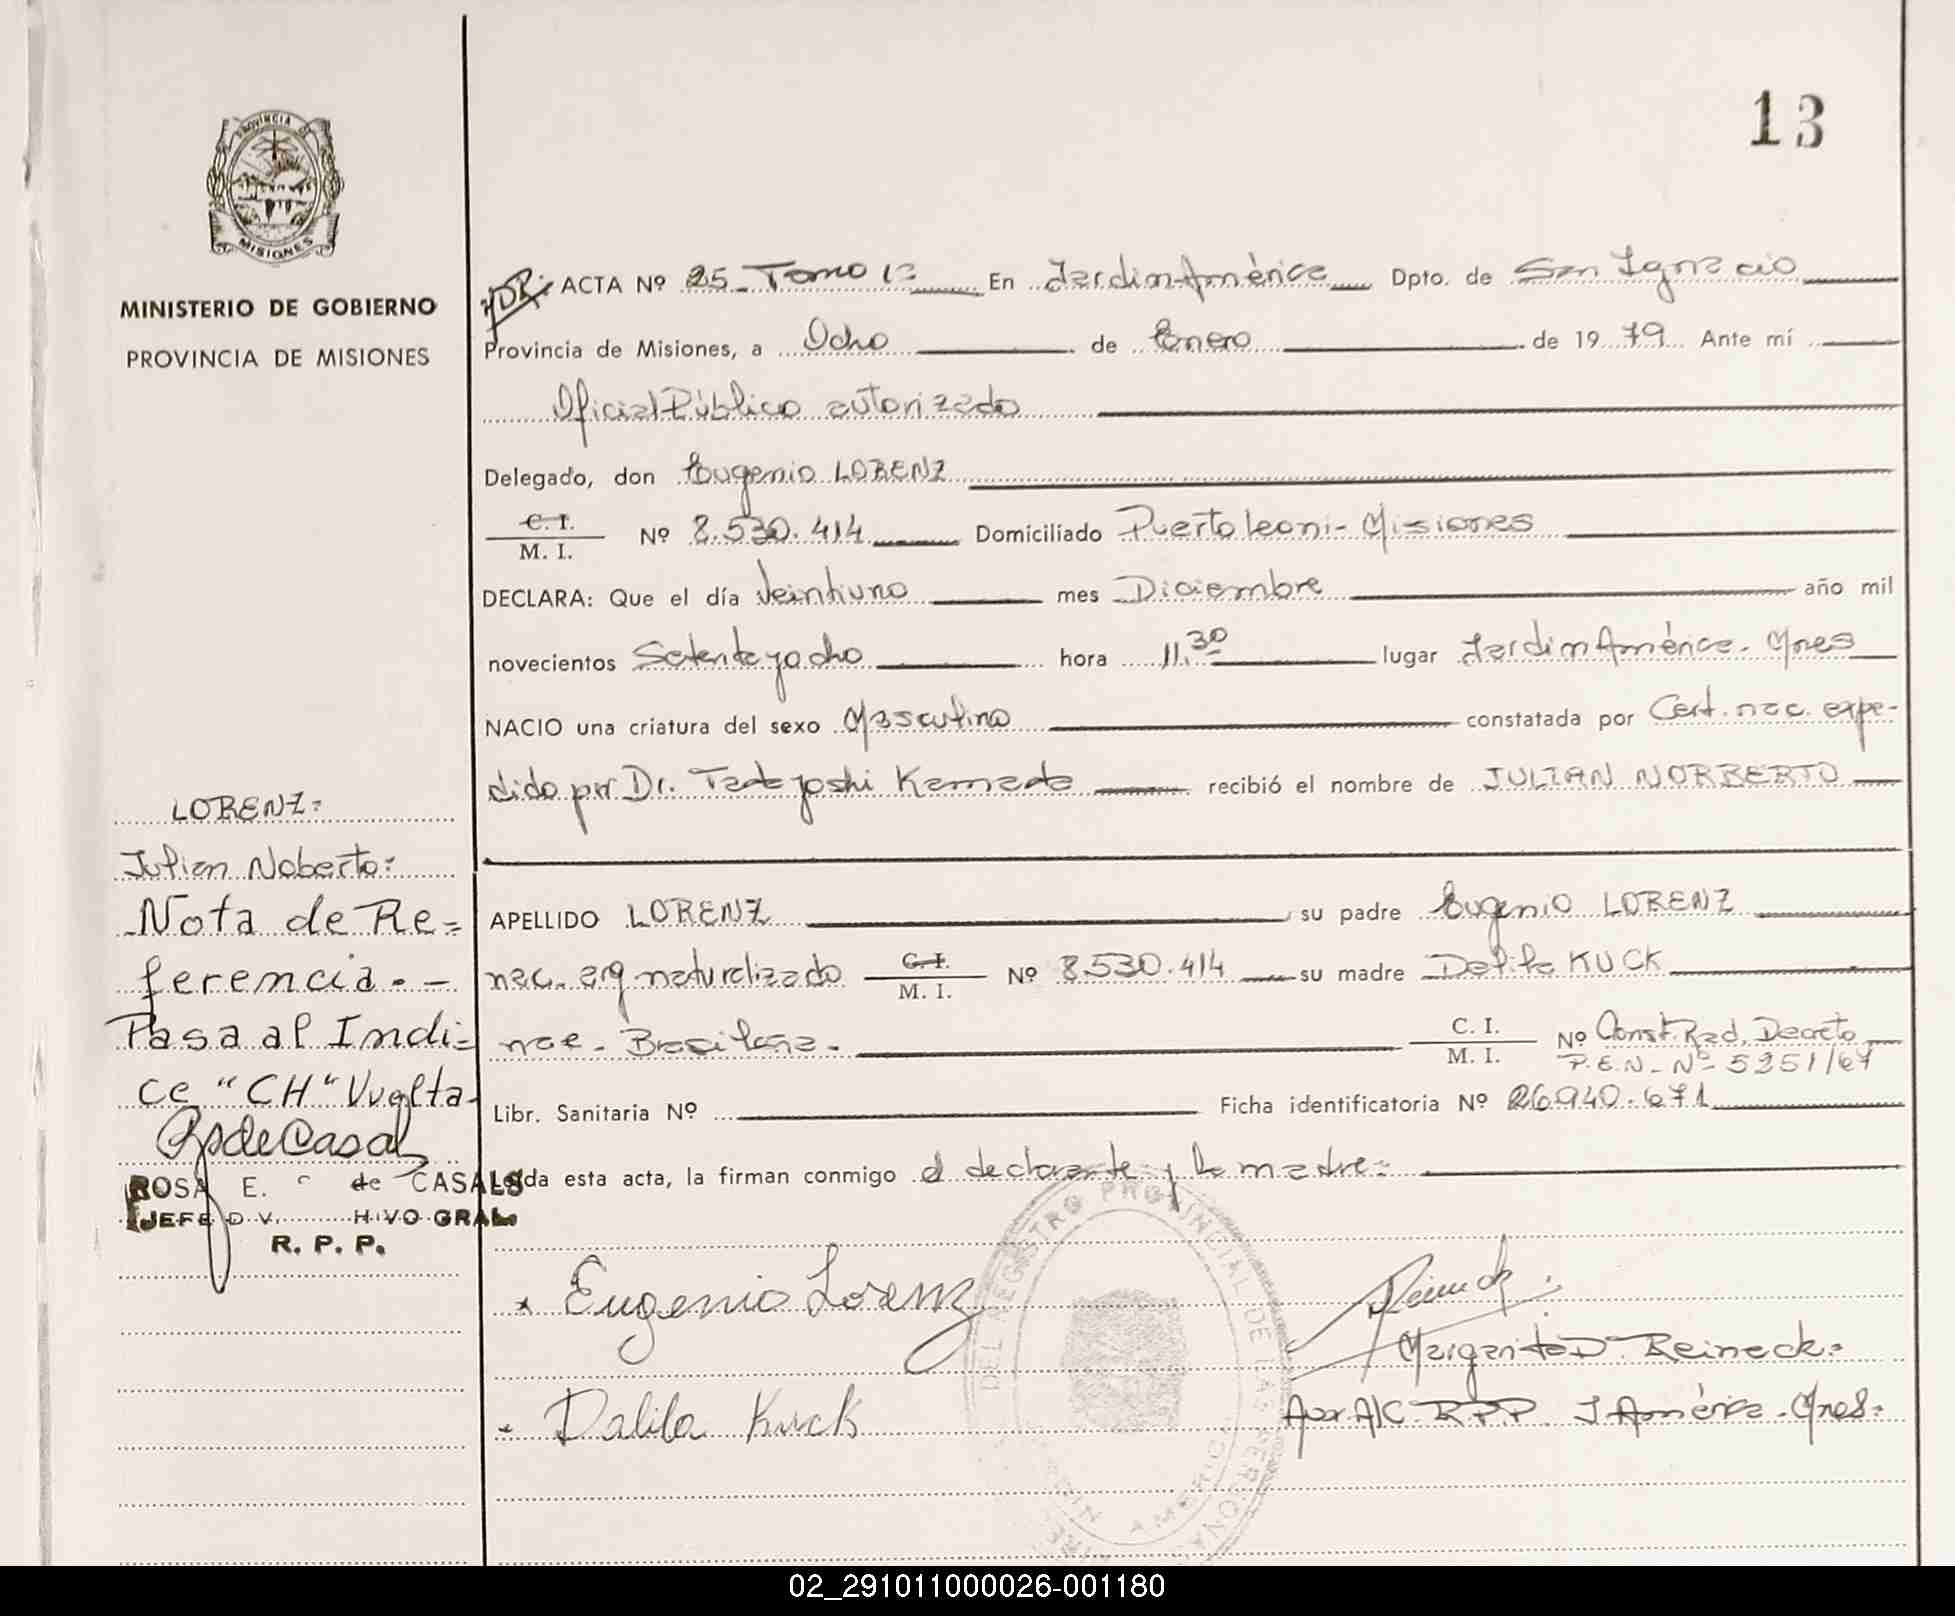 13
PROVINCIA DE
MISIONES
MINISTERIO DE GOBIERNO
PROVINCIA DE MISIONES
ACTA Nº 25 - Tomo 1º En Jardin América Dpto. de San Ignacio
Provincia de Misiones, a Ocho de Enero de 1979 Ante mí
Oficial Público autorizado
Delegado, don Eugenio LORENZ
C. I.
M. I. Nº 8.530.414 Domiciliado Puerto Leoni - Misiones
DECLARA: Que el día Veintiuno mes Diciembre año mil
novecientos Setenta y ocho hora 11.30 lugar Jardin América. Mnes
NACIO una criatura del sexo Masculino constatada por Cert. nac. expe-
dido por Dr. Tadayoshi Kamada recibió el nombre de JULIAN NORBERTO
APELLIDO LORENZ su padre Eugenio LORENZ
nac. arg naturalizado C. I.
M. I. Nº 8.530.414 su madre Delila KUCK
nac. Brasileña. C. I.
M. I. Nº Const. Rad. Decreto
P.E.N. Nº 5251/67
Libr. Sanitaria Nº Ficha identificatoria Nº 26.940.671
Leída esta acta, la firman conmigo el declarante y la madre:
LORENZ:
Julian Noberto:
Nota de Re=
ferencia. -
Pasa al Indi=
ce "CH" Vuelta-
RsdeCasal
ROSA E. de CASALS
JEFE DIV. HIVO GRAL
R. P. P.
Eugenio Lorenz
Dalila Kuck
Reineck
Margarita D. Reineck:
Aux. A/C. R.P.P. J. América - Mnes:
DEL REGISTRO PROVINCIAL DE LAS PERSONAS
AMERICA
02_291011000026-001180